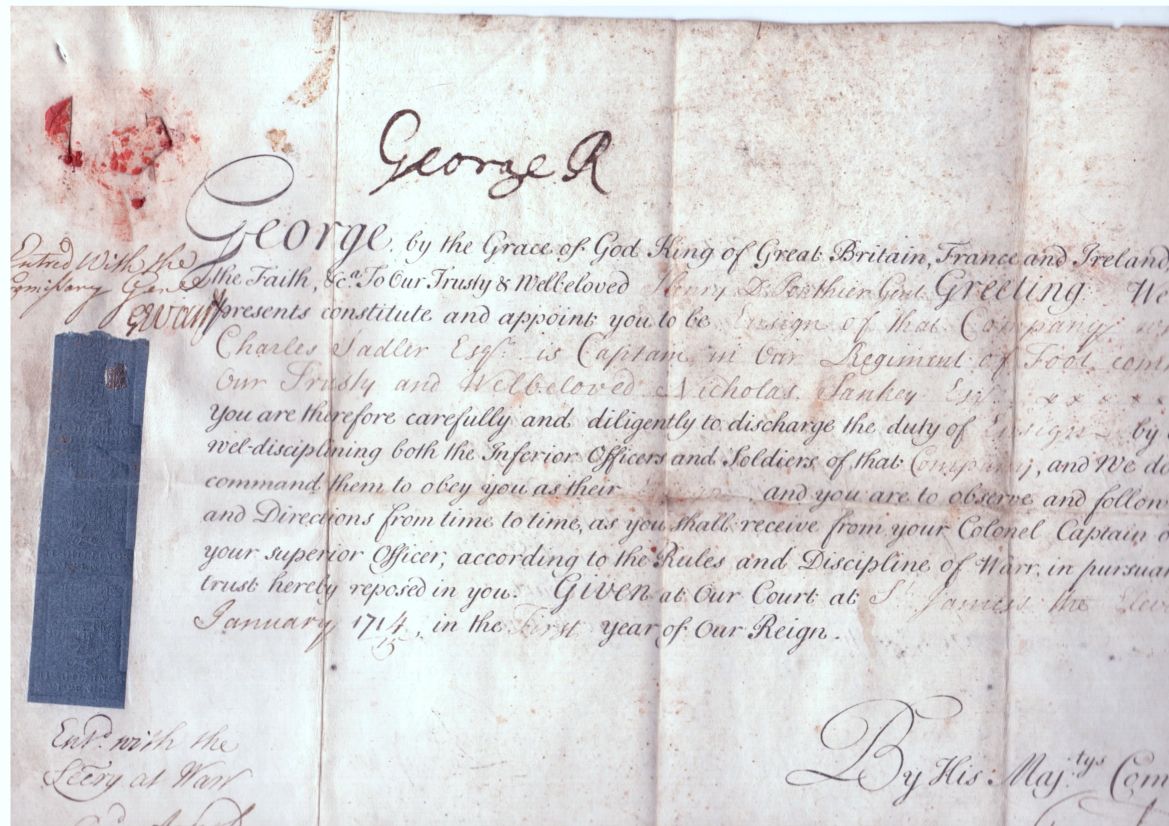 George R
George, by the Grace of God King of Great Britain, France and Ireland
the Faith, &c.ᵃ To Our Trusty & Welbeloved Henry Gent Greeting We
presents constitute and appoint you to be Ensign of that Company
Charles Sadler Esqr. is Captain in Our Regiment of Foot com
Our Trusty and Welbeloved Nicholas Sankey Esqr. x x x x x
You are therefore carefully and diligently to discharge the duty of Ensign by
wel-disciplining both the Inferior Officers and Soldiers of that Company, and We do
command them to obey you as their and you are to observe and follow
and Directions from time to time, as you shall receive from your Colonel Captain o
your superior Officer, according to the Rules and Discipline of Warr, in pursuan
trust hereby reposed in you. Given at Our Court at St. James's the Elev
January 1714/15, in the First year of Our Reign.
Entred With the
Comissary Genll
Entd. with the
Secry at Warr
By His Maj.tys Com